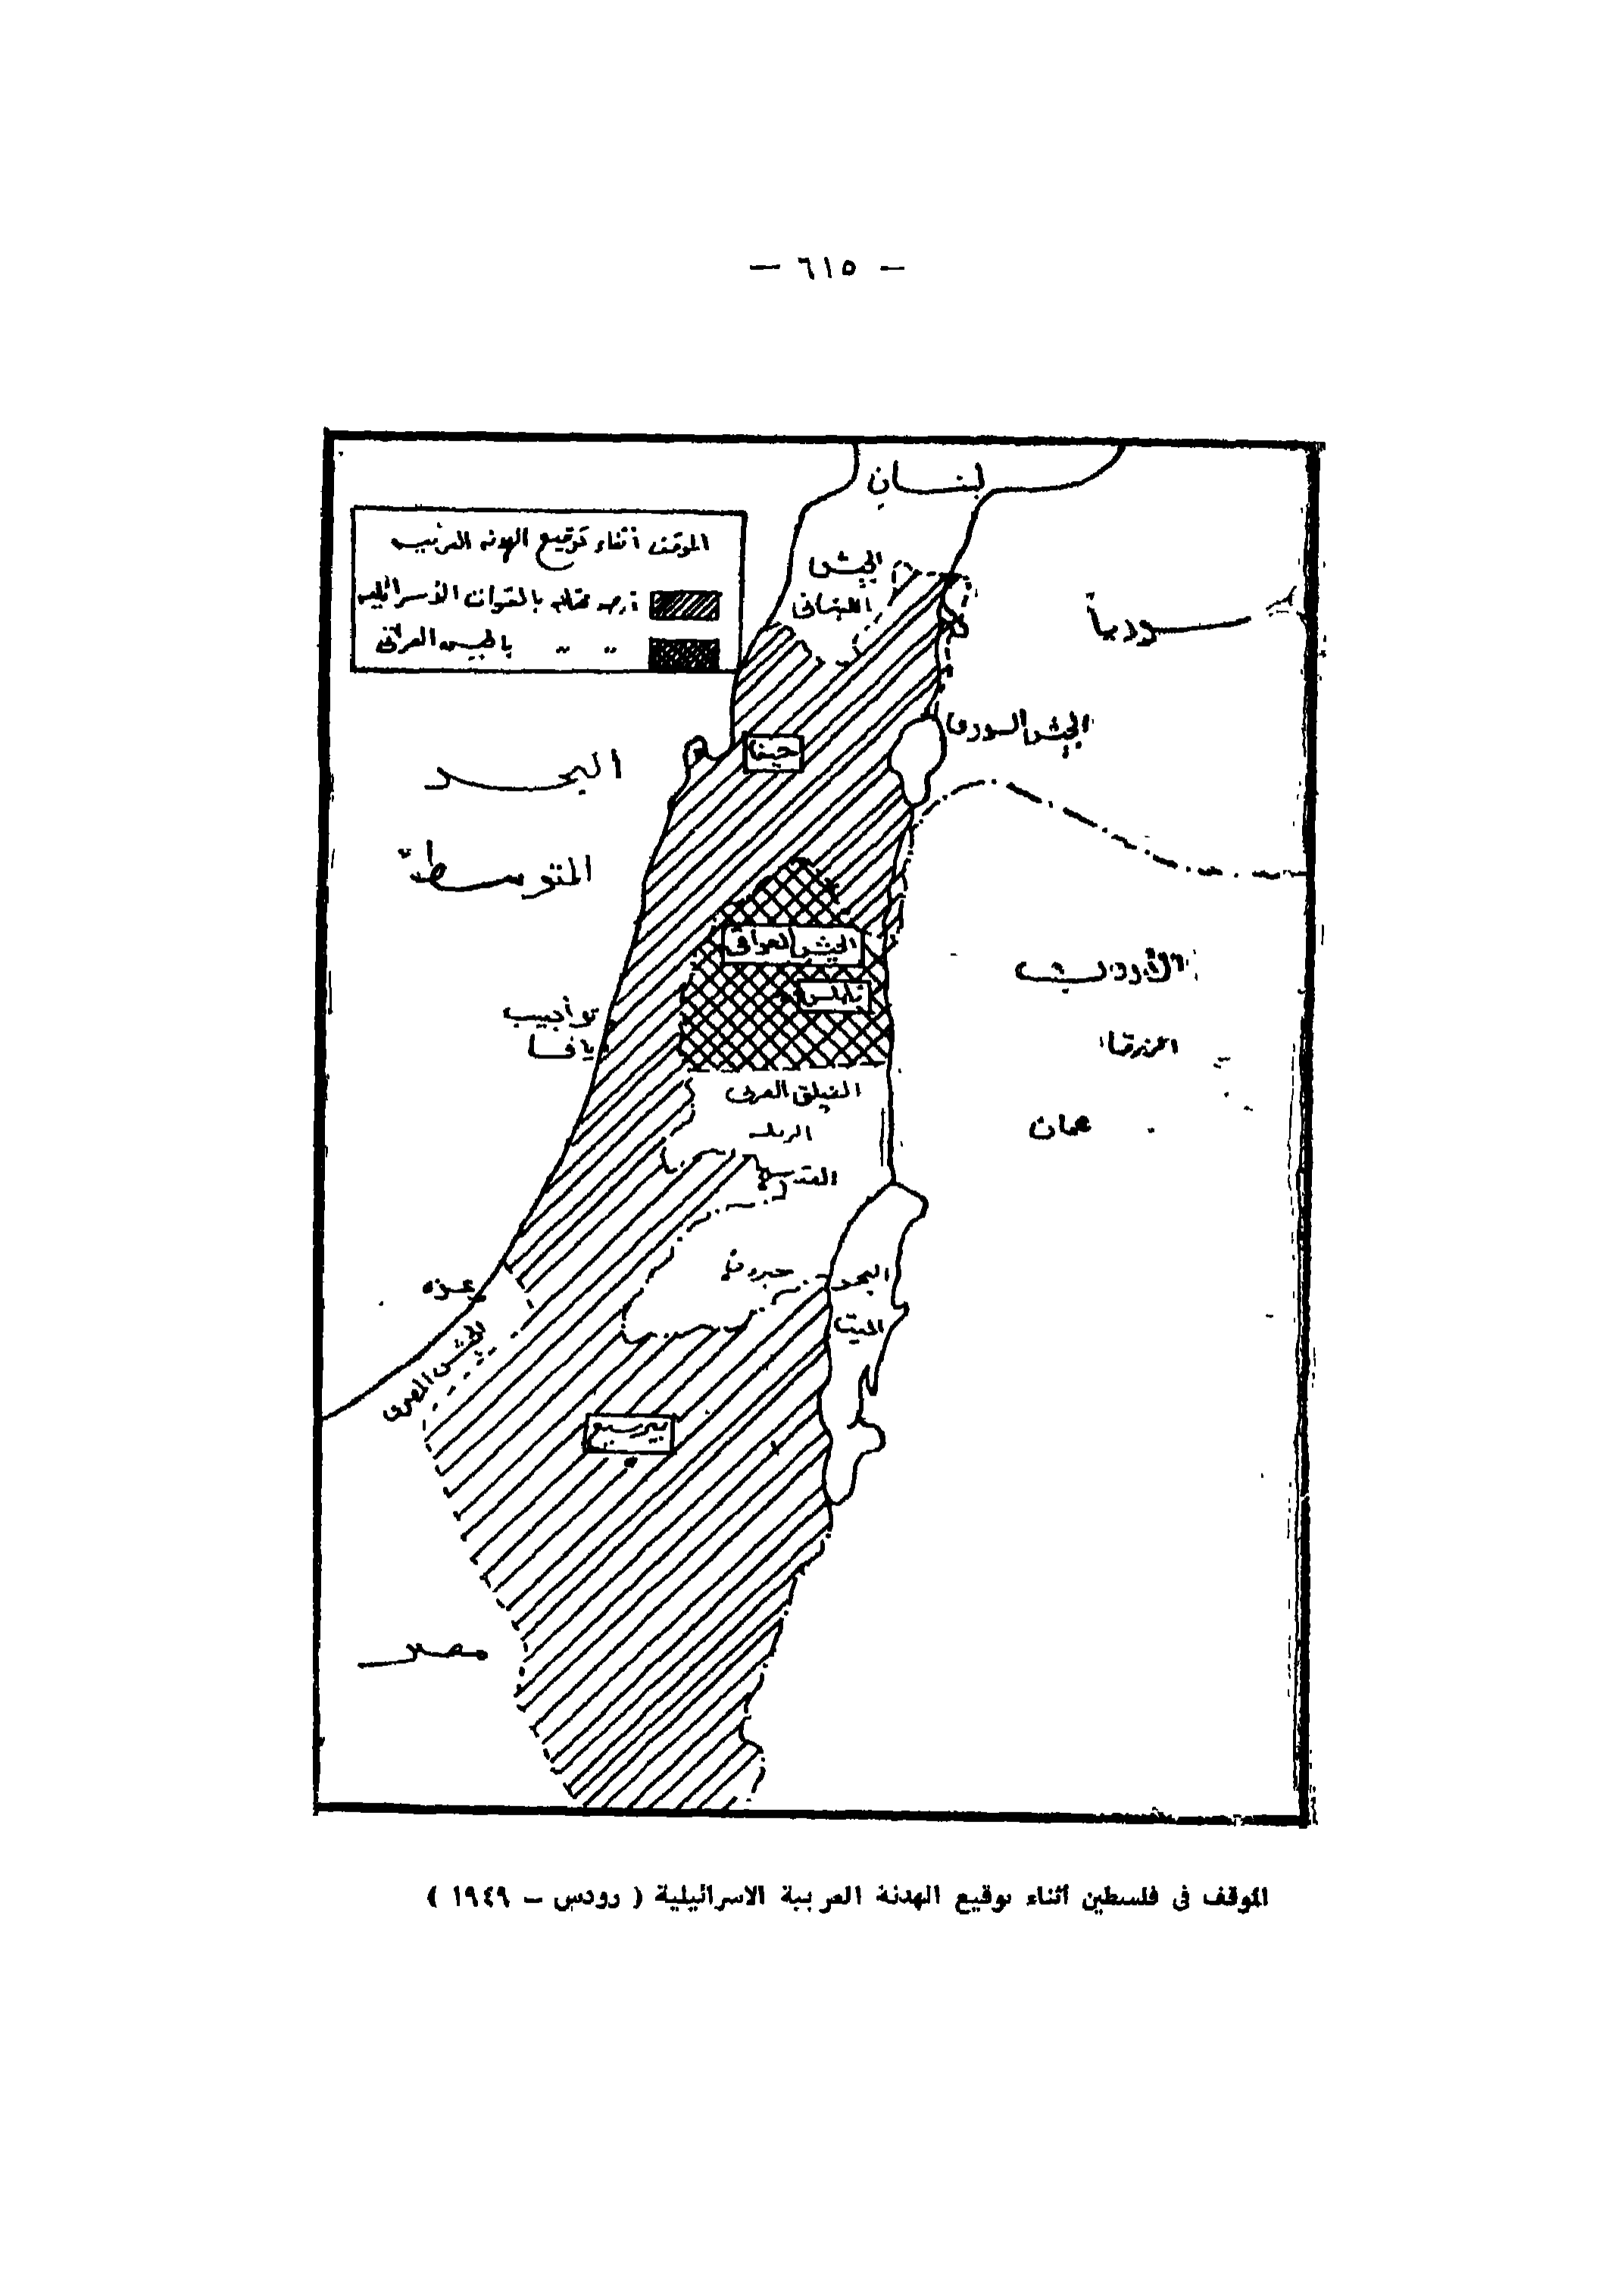 — ٦١٥ —
لبنان
الموقف أثناء توقيع الهدنه العربيه
أرض محتله بالقوات الأسرائيليه
" " بالجيش العراقى
الجيش
اللبنانى
سوريا
الجيش السورى
حيفا
البحر
المتوسط
الجيش العراقى
نابلس
الأردن
تل أبيب
يافا
الزرقا
الفيلق العربى
عمان
القدس
غزه
البحر
الميت
الجيش المصرى
بير سبع
مصر
الموقف فى فلسطين أثناء توقيع الهدنة العربية الاسرائيلية ( رودس – ١٩٤٩ )